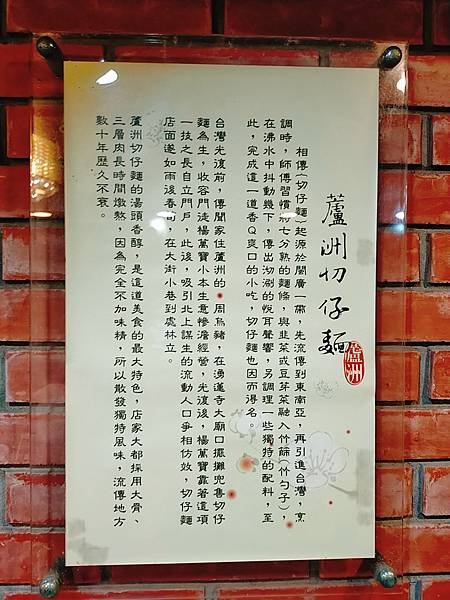 蘆洲切仔麵
蘆洲
相傳(切仔麵)起源於閩廣一帶，先流傳到東南亞，再引進台灣，烹
調時，師傅習慣將七分熟的麵條，與韭菜或豆芽菜融入竹篩(竹勺子)，
在沸水中抖動幾下，傳出沏涮的悅耳聲響，另調理一些獨特的配料，至
此，完成這一道香Q爽口的小吃，切仔麵也因而得名。
台灣光復前，傳聞家住蘆洲的周烏豬，在湧蓮寺大廟口擺攤兜售切仔
麵為生，收容門徒楊萬寶小本生意慘澹經營，光復後，楊萬寶靠著這項
一技之長自立門戶，此後，吸引北上謀生的流動人口爭相仿效，切仔麵
店面遂如雨後春筍，在大街小巷到處林立。
蘆洲切仔麵的湯頭香醇，是這道美食的最大特色，店家大都採用大骨、
三層肉長時間燉熬，因為完全不加味精，所以散發獨特風味，流傳地方
數十年歷久不衰。